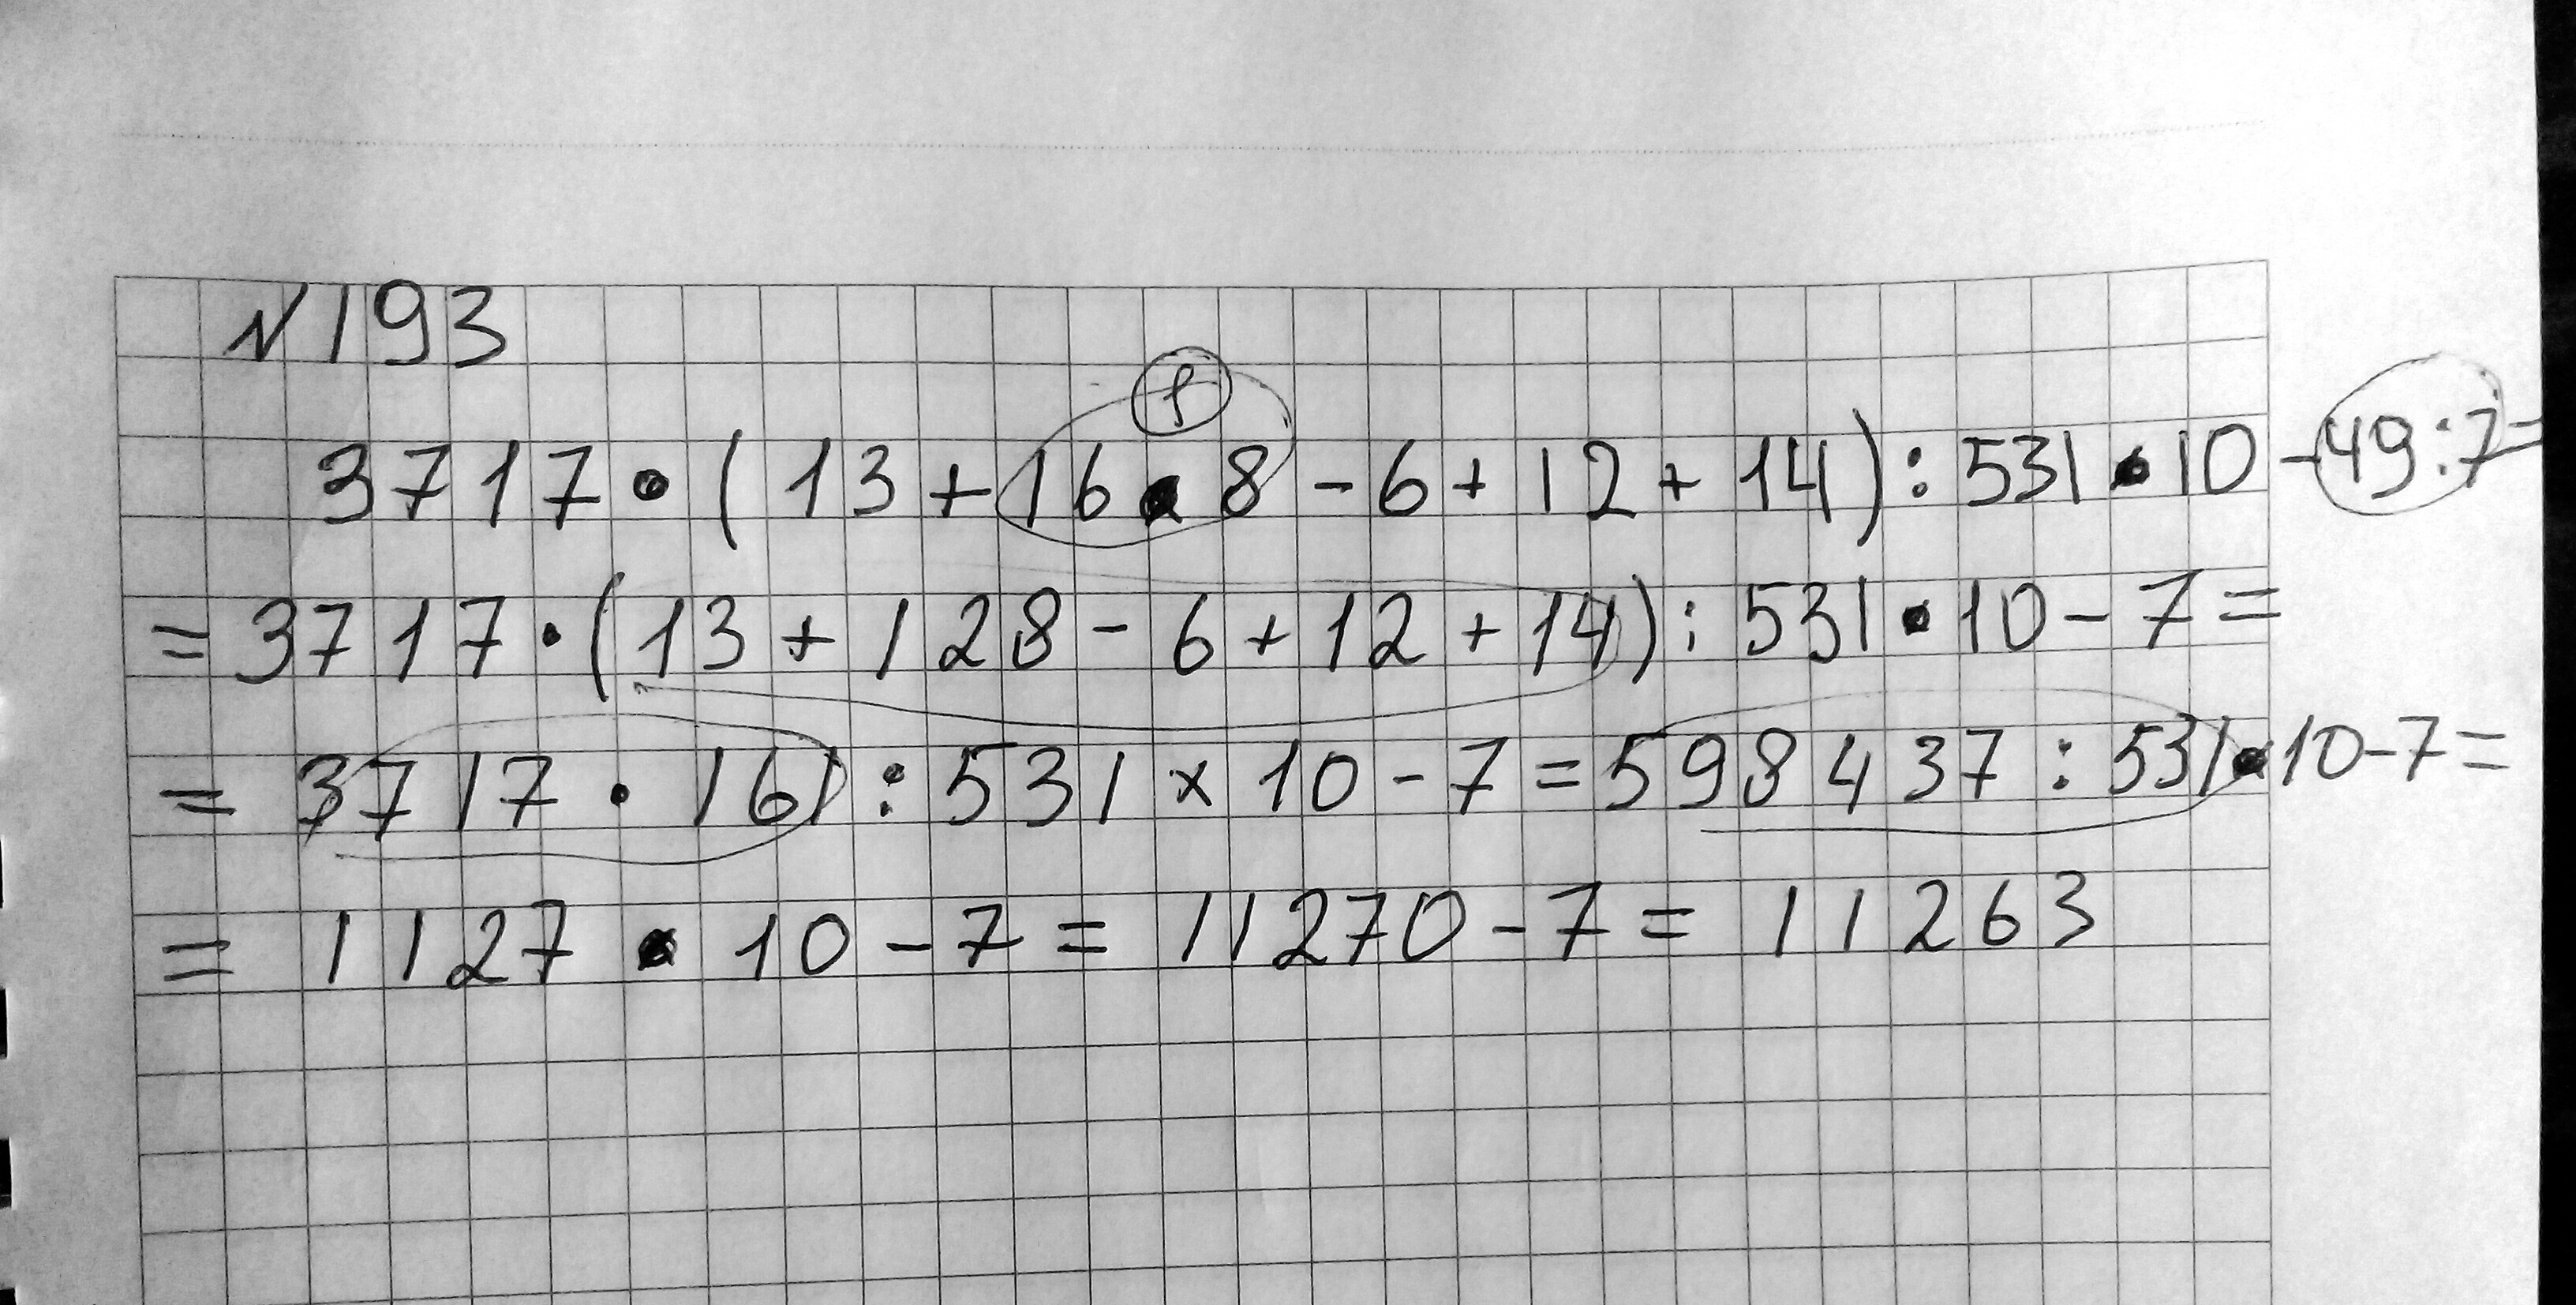 №193
1
3717•(13+16•8-6+12+14):531•10-49:7=
=3717•(13+128-6+12+14):531•10-7=
=3717•161:531×10-7=598437:531•10-7=
=1127•10-7=11270-7=11263